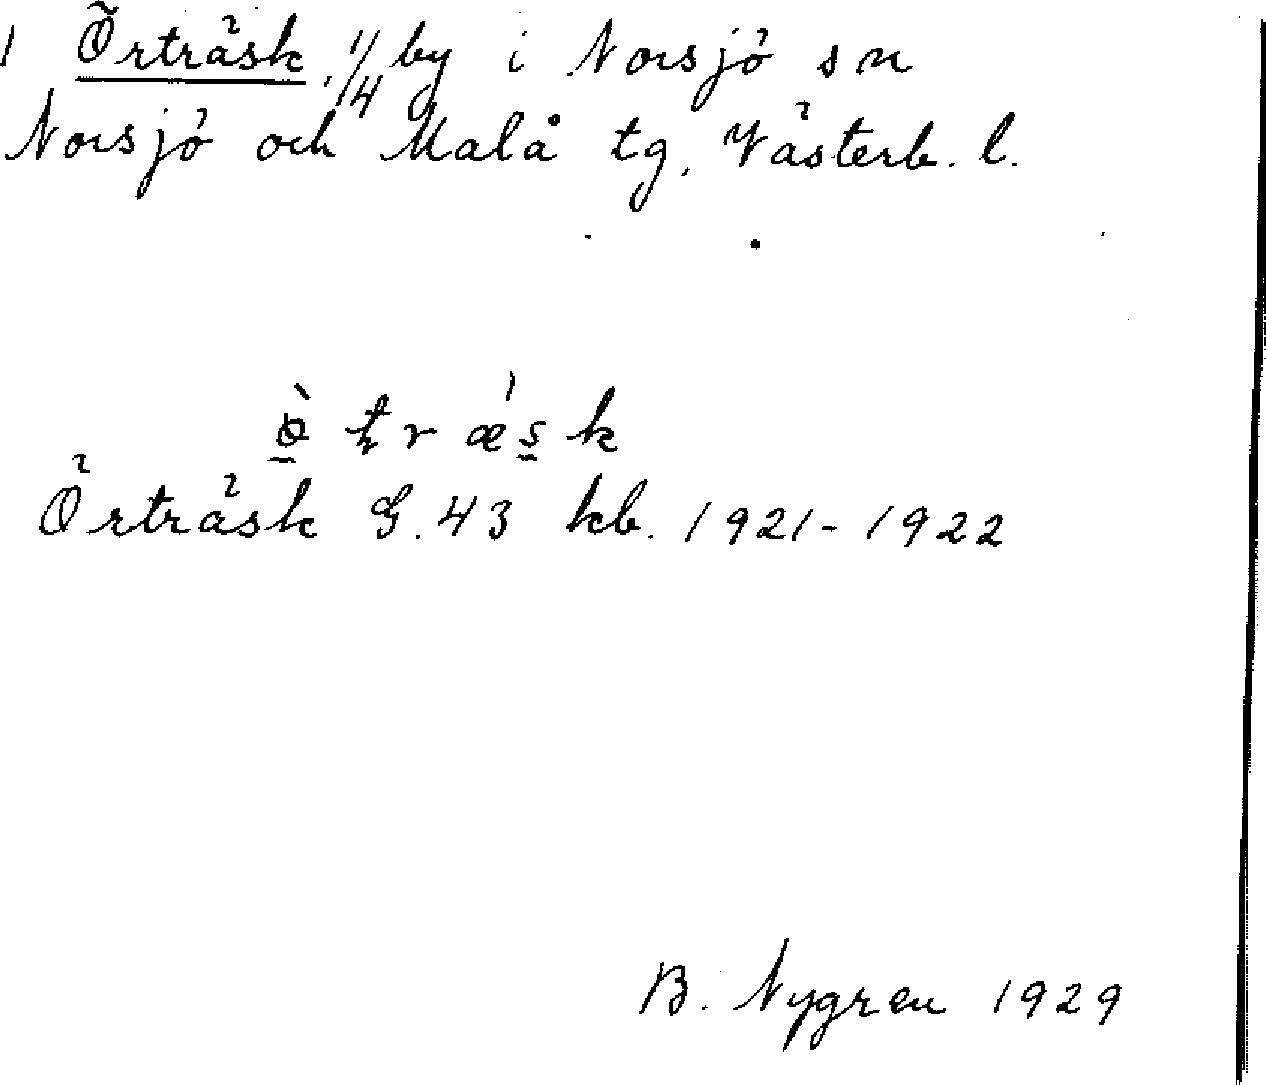 1 Örträsk. 1/4 by i Norsjö sn
Norsjö och Malå tg. Västerb. l.
ö̀ t r ǽ s k
Örträsk G. 43 kb. 1921-1922
B. Nygren 1929